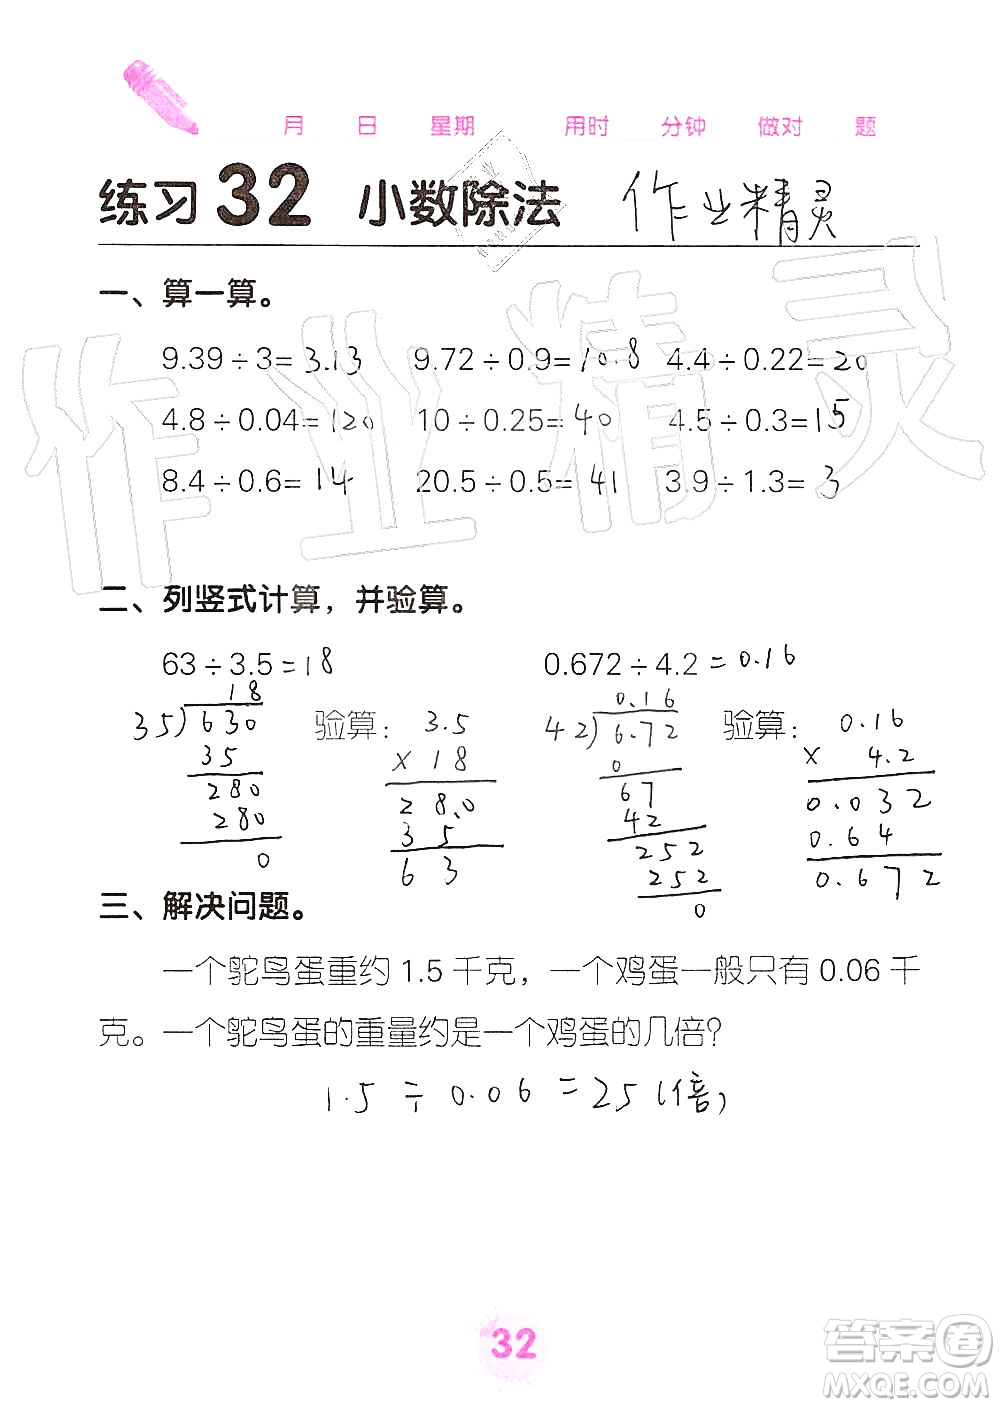 月 日 星期 用时 分钟 做对 题
练习 32 小数除法 作业精灵
一、算一算。
9.39÷3=3.13 9.72÷0.9=10.8 4.4÷0.22=20
4.8÷0.04=120 10÷0.25=40 4.5÷0.3=15
8.4÷0.6=14 20.5÷0.5=41 3.9÷1.3=3
作业精灵
二、列竖式计算，并验算。
63÷3.5=18 0.672÷4.2=0.16
18 0.16
35)630 验算: 3.5 42)6.72 验算: 0.16
35 ×18 0 ×4.2
280 28.0 67 0.032
280 35 42 0.64
0 63 252 0.672
252
0
三、解决问题。
一个鸵鸟蛋重约 1.5 千克，一个鸡蛋一般只有 0.06 千
克。一个鸵鸟蛋的重量约是一个鸡蛋的几倍？
1.5÷0.06=25(倍)
32
答案卷
MXQE.COM